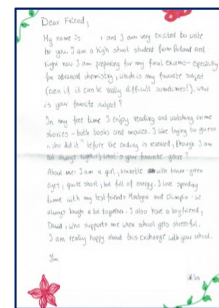 Dear Friend,
My name is: I and I am very excited to write
to you. I am a high school student from Poland and
right now I am preparing for my final exams – especially
for advanced chemistry, which is my favorite subject
(even if it can be really difficult sometimes!). Who
is your favorite subject?
In my free time I enjoy reading and watching crime
stories – both books and movies. I like trying to guess
"who did it" before the ending is revealed, though I am
not always right! What's your favorite genre?
About me: I am a girl, with brown-green
eyes, quite short, but full of energy. I love spending
time with my best friends Martyna and – we
always laugh a lot together. I also have a boyfriend,
David, who supports me when school gets stressful.
I am really happy about this exchange with your school.